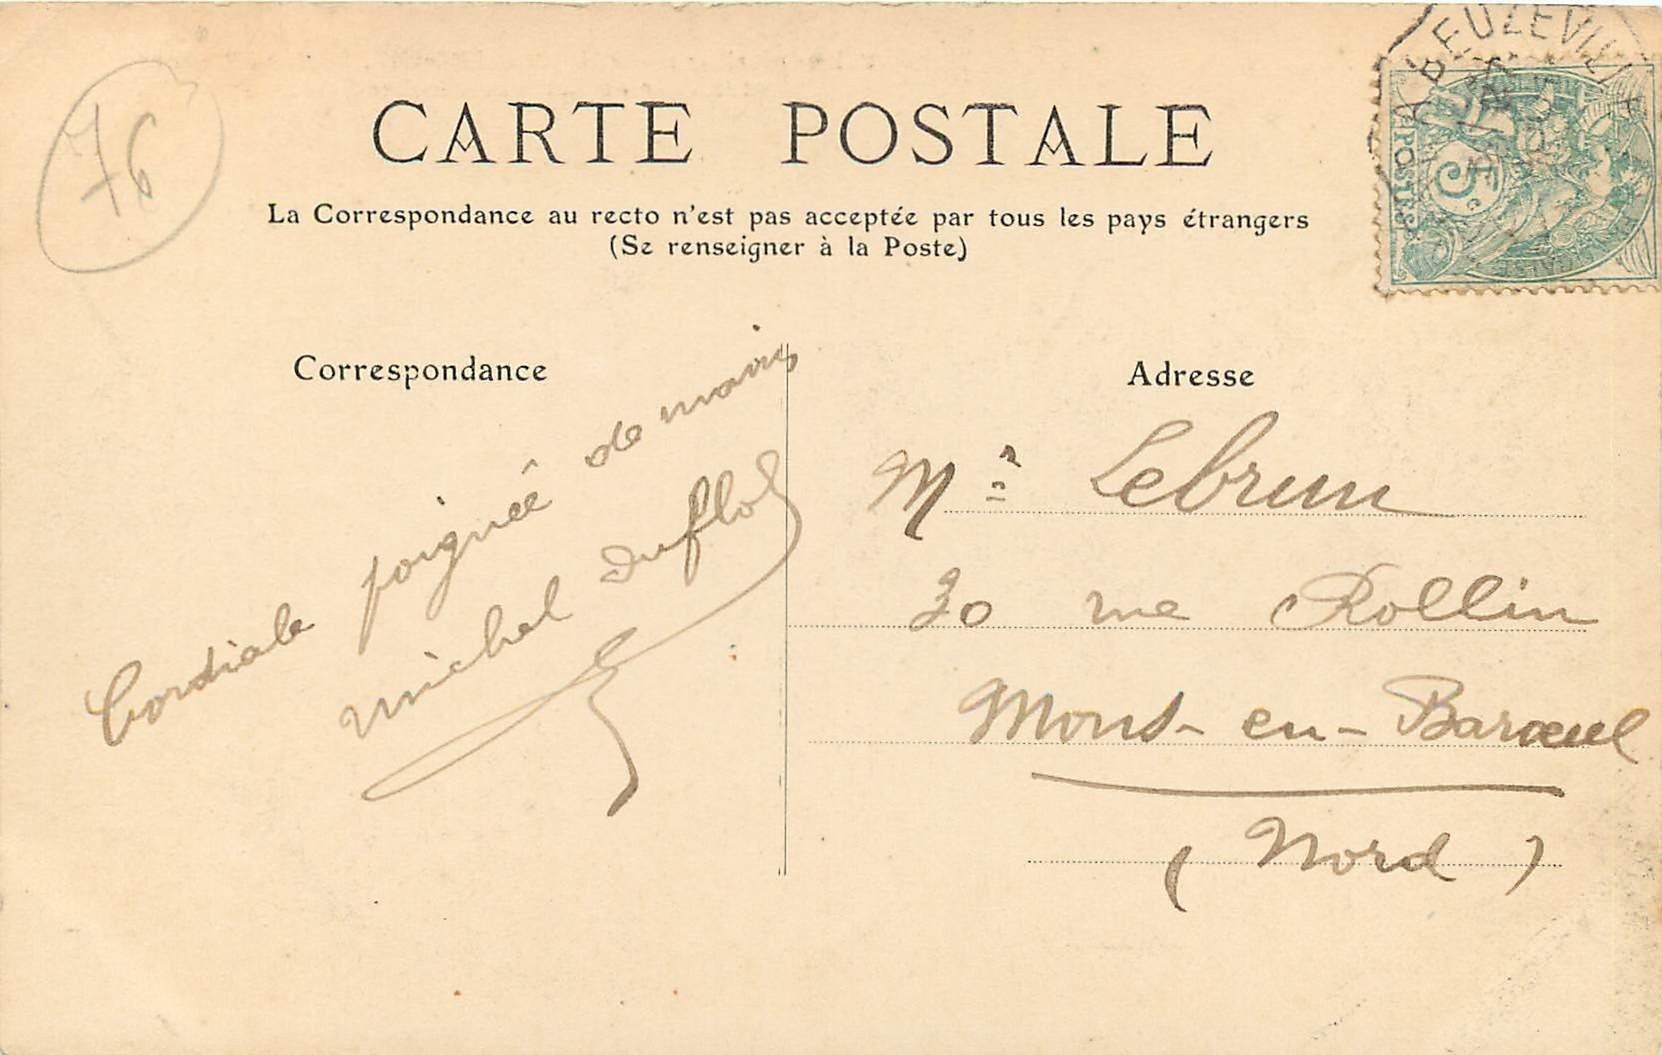 76
CARTE POSTALE
La Correspondance au recto n'est pas acceptée par tous les pays étrangers
(Se renseigner à la Poste)
BEUZEVILLE
POSTES
5c
Correspondance
Cordiale poignée de mains
Michel Duflos
Adresse
Mr Lebrun
30 rue Rollin
Mons-en-Barœul
(Nord)